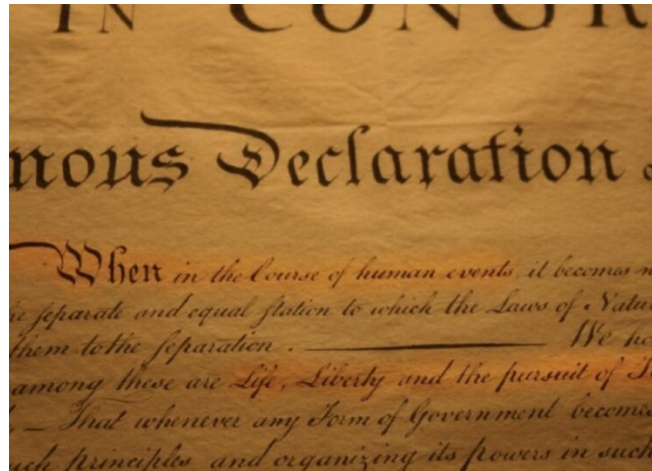 IN CONGR
nous Declaration
When in the Course of human events, it becomes n
he separate and equal station to which the Laws of Natur
them to the separation. We ho
among these are Life, Liberty and the pursuit of
— That whenever any Form of Government becomes
uch principles and organizing its powers in such